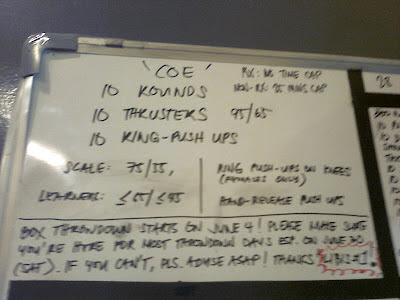 'COE'
RX: NO TIME CAP
NON-RX: 25 MINS CAP
10 ROUNDS
10 THRUSTERS 95/65
10 RING-PUSH UPS
SCALE: 75/55,
RING PUSH-UPS ON KNEES
(FEMALES ONLY)
LEARNERS: ≤65/≤45
HAND-RELEASE PUSH UPS
BOX THROWDOWN STARTS ON JUNE 4! PLEASE MAKE SURE
YOU'RE HERE FOR MOST THROWDOWN DAYS ESP. ON JUNE 30
(SAT). IF YOU CAN'T, PLS. ADVISE ASAP! THANKS
28